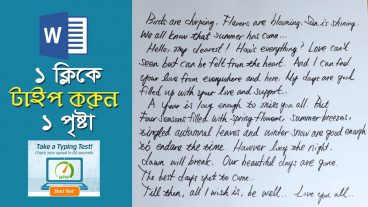 W
১ ক্লিকে
টাইপ করুন
১ পৃষ্টা
Take a Typing Test!
Check your speed in 60 seconds
WPM
Start Test
Birds are chirping. Flowers are blooming. Sun is shining.
We all know that summer has come...
Hello, my dearest! How's everything? Love can't
seen but can be felt from the heart. And I can feel
your love from everywhere and here. My days are good
filled up with your love and support.
A year is long enough to miss you all. But
four seasons filled with spring flowers, summer breezes,
autumnal leaves and winter snow are good enough
to endure the time. However long the night,
dawn will break. Our beautiful days are gone.
The best days yet to come..
Till then, all I wish is, be well.. Love you all..